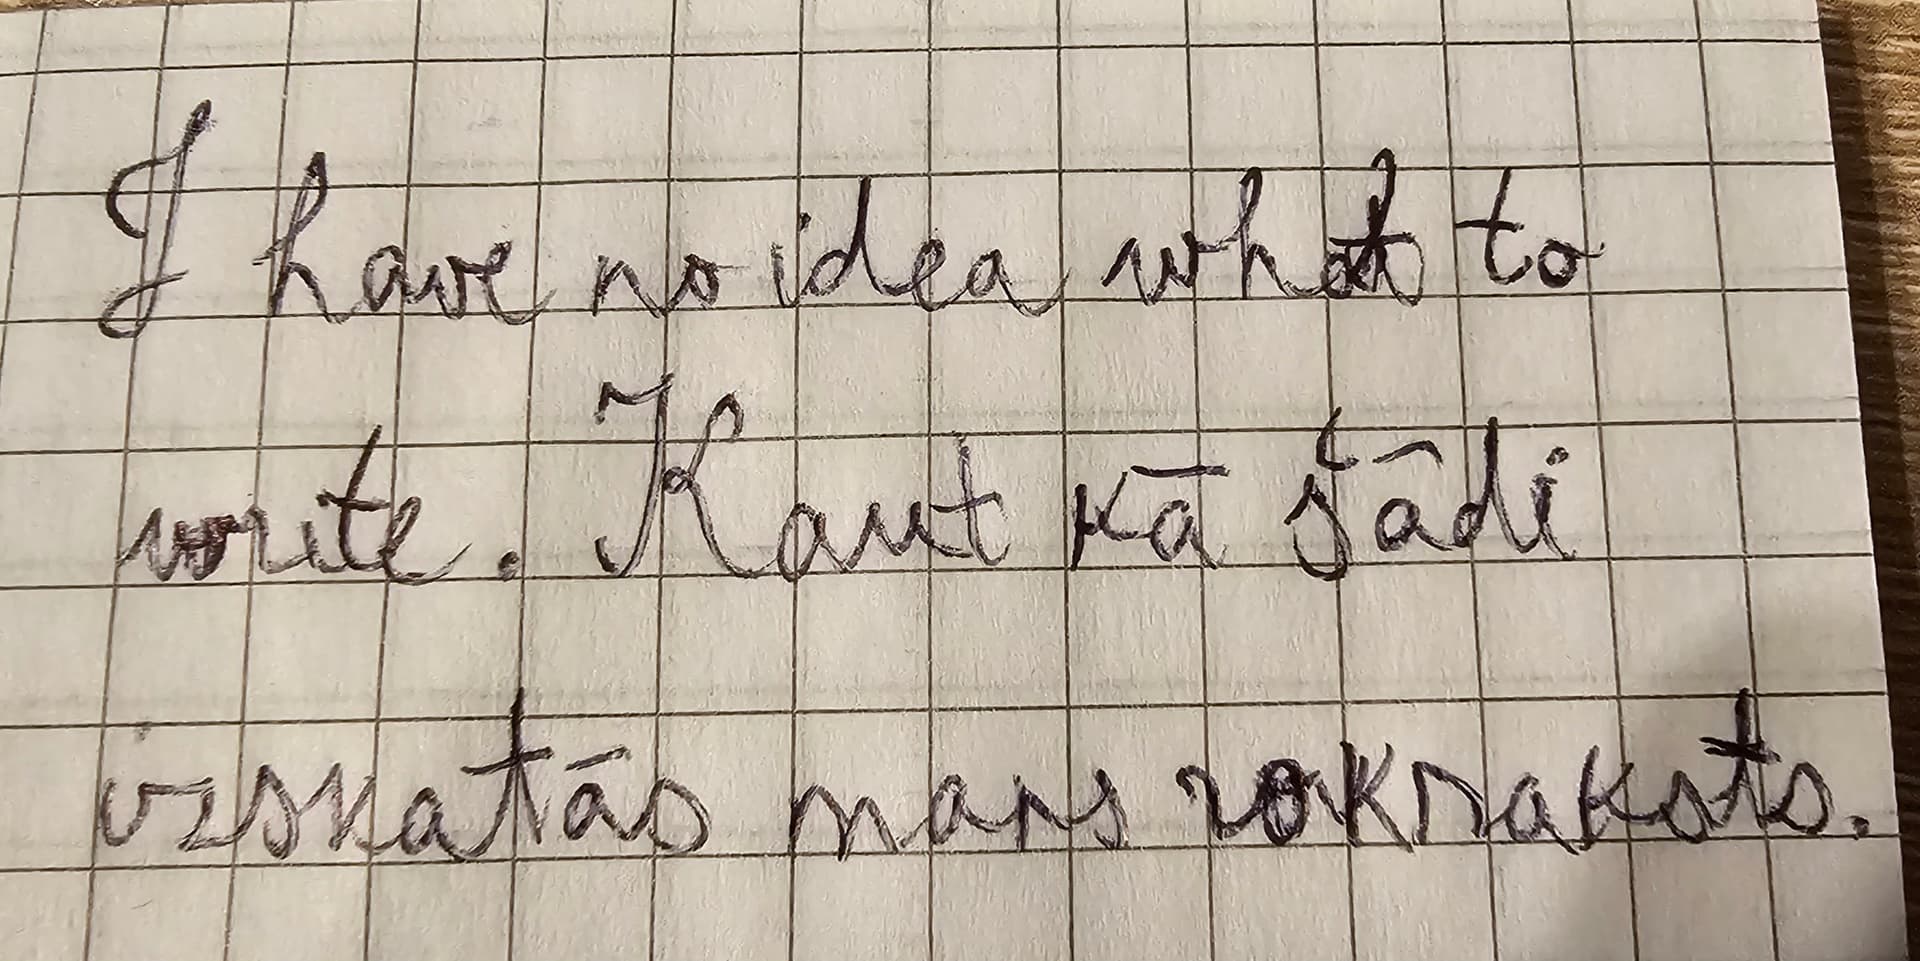 I have no idea what to
write. Kaut kā šādi
izskatās mans rokraksts.